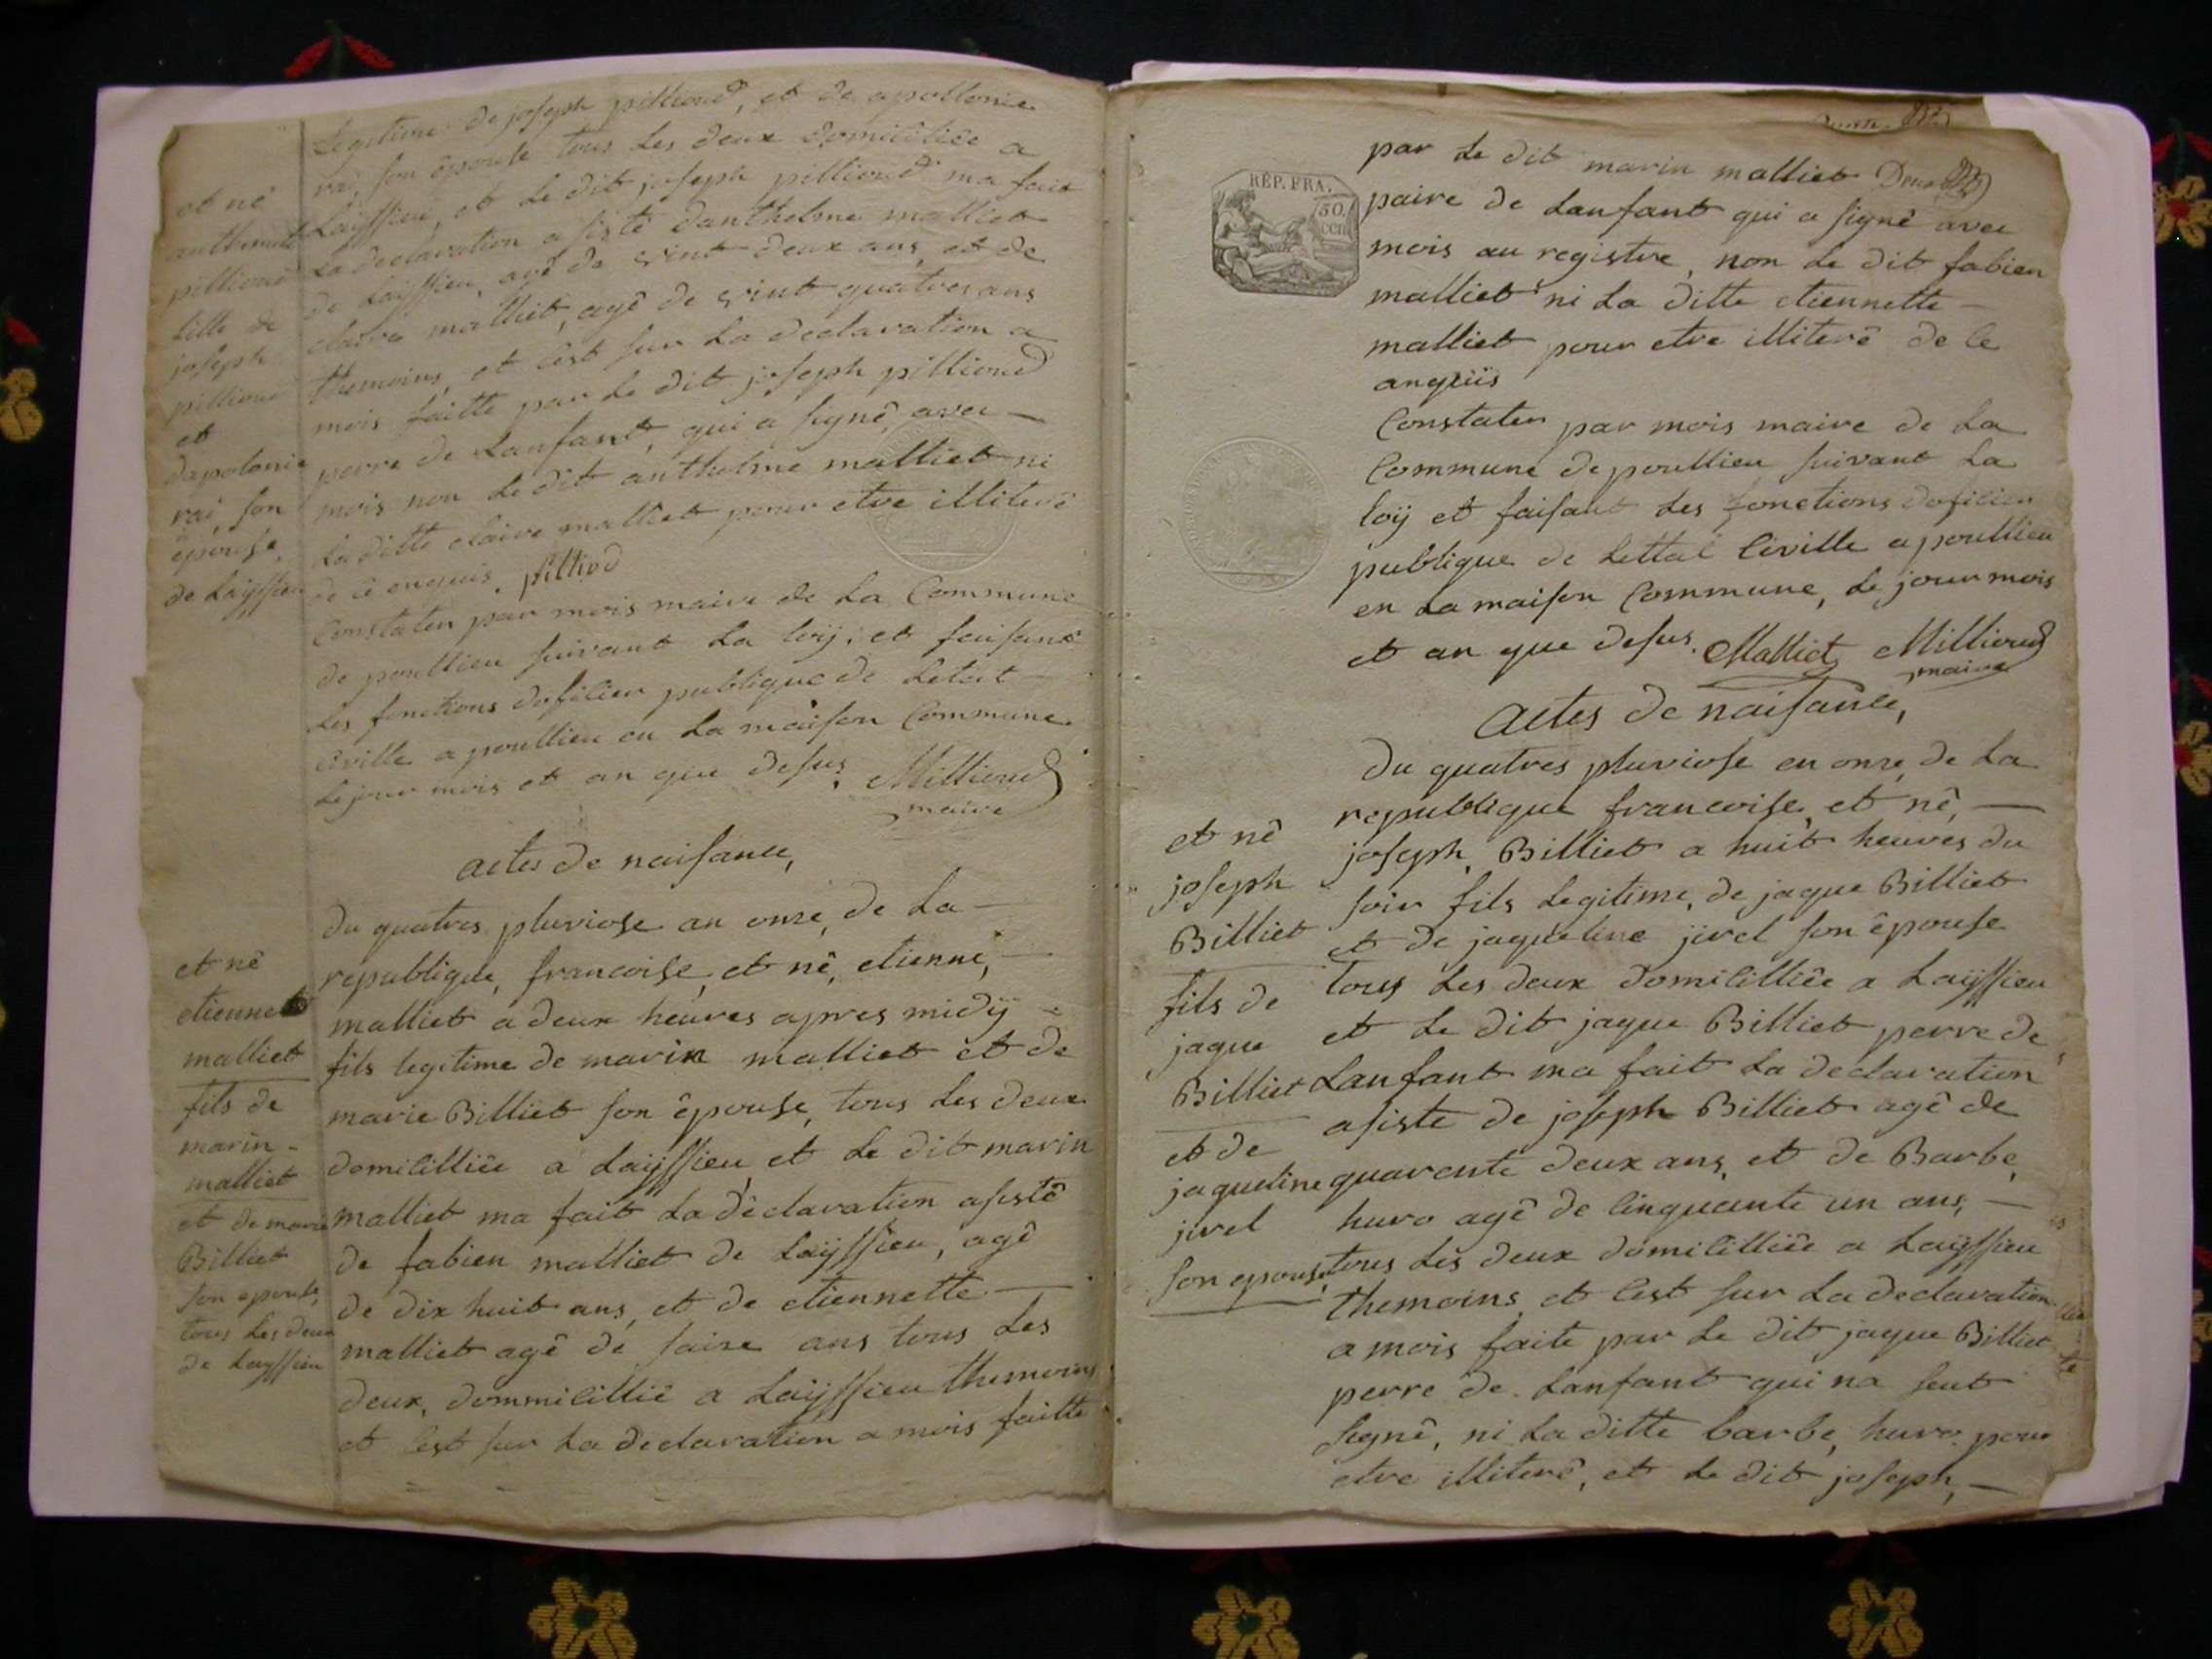 Legitime de joseph pillioud, et de apollonie
rai, son épouse tous les deux domiciliée a
Layssieu, et le dit joseph pillioud ma fait
La declaration asisté danthelme malliet
de Layssieu, agé de vint deux ans, et de
claire malliet, agé de vint quatres ans
themoins, et cést sur la declaration a
mois faitte par le dit joseph pillioud
perre de Lanfant, qui a signé, avec
mois non le dit anthelme malliet ni
La ditte claire malliet pour etre illiteré
de ce enquis. pilliod
Constaten par mois maire de la Commune
de poullieu suivant La loÿ, et faisant
les fonctions dofficier publique de Letat
civille a poullieu en La maison Commune
Le jour mois et an que desus. Millioud
maire
et né
anthemete
pilliond
fille de
joseph
pillioud
et
dapolonie
rai, son
épouse,
de Layssieu
actes de naisance,
Du quatres pluviose an onze, de La
republique, francoise, et né, etienne,
malliet a deux heures apres midÿ
fils legitime de marin malliet et de
marie Billiet son épouse, tous les deux
domicilliée a Laÿssieu et le dit marin
malliet ma fait La déclaration asisté
de fabien malliet de Laÿssieu, agé
de dix huit ans, et de etiennette
malliet agé de saize ans tous les
deux, dommicillié a Laÿssieu themoins
et cést sur La declaration a mois faitte
et né
etienne
malliet
fils de
marin
malliet
et de marie
Billiet
son epouse,
tous les deux
de Layssieu
par le dit marin malliet Deux
paire de Lanfant qui a signé avec
mois au registre, non le dit fabien
malliet ni La ditte etiennette
malliet pour etre illiteré de ce
anquiis
RÉP. FRA.
50.
CEN
Constaten par mois maire de La
Commune de poullieu suivant La
loÿ et faisant les fonctions doficier
publique de Lettat Civille a poullieu
en La maison Commune, Le jour mois
et an que desus. Malliet Millioud
maire
actes de naisance,
Du quatres pluviose en onze, de La
republique francoise, et né,
joseph, Billiet a huit heures du
soir fils Legitime, de jaque Billiet
et de jaqueline jirel son épouse
tous les deux domicilliée a Laÿssieu
et le dit jaque Billiet perre de
Lanfant ma fait La declaration
asiste de joseph Billiet agé de
quarente deux ans, et de Barbe,
huro agé de Cinquante un ans,
tous les deux domicilliée a Laÿssieu
themoins, et Cest sur La declaration
a mois faite par le dit jaque Billiet
perre de Lanfant qui na seut
signé, ni La ditte barbe, huro pour
etre illiteré, et le dit joseph,
et né
joseph
Billiet
fils de
jaque
Billiet
et de
jaqueline
jirel
son epouse